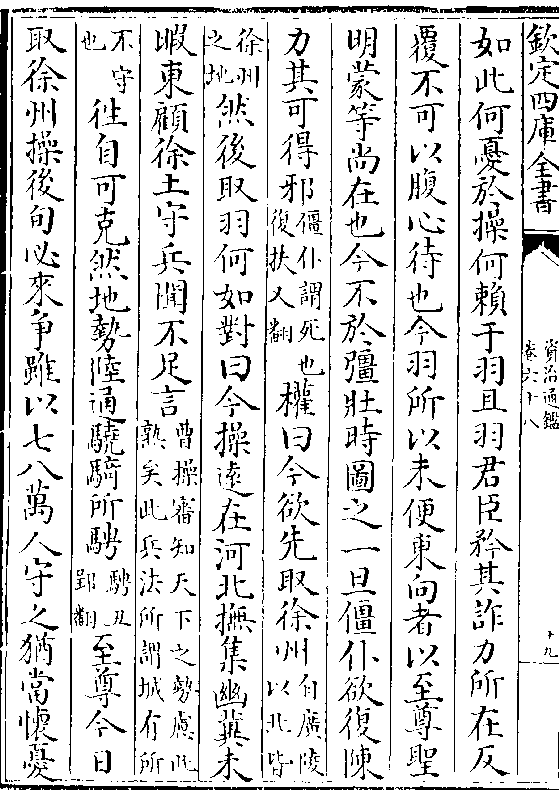 欽定四庫全書
資治通鑑
卷六十八
十九
如此何憂於操何賴于羽且羽君臣矜其詐力所在反
覆不可以腹心待也今羽所以未便東向者以至尊聖
明蒙等尚在也今不於彊壯時圖之一旦僵仆欲復陳
力其可得邪僵仆謂死也復扶又翻權曰今欲先取徐州自廣陵以北皆
徐州之地然後取羽何如對曰今操遠在河北撫集幽冀未
暇東顧徐土守兵聞不足言曹操審知天下之勢慮此熟矣此兵法所謂城有所
不守也往自可克然地勢陸通驍騎所騁騁丑郢翻至尊今日
取徐州操後旬必來爭雖以七八萬人守之猶當懷憂